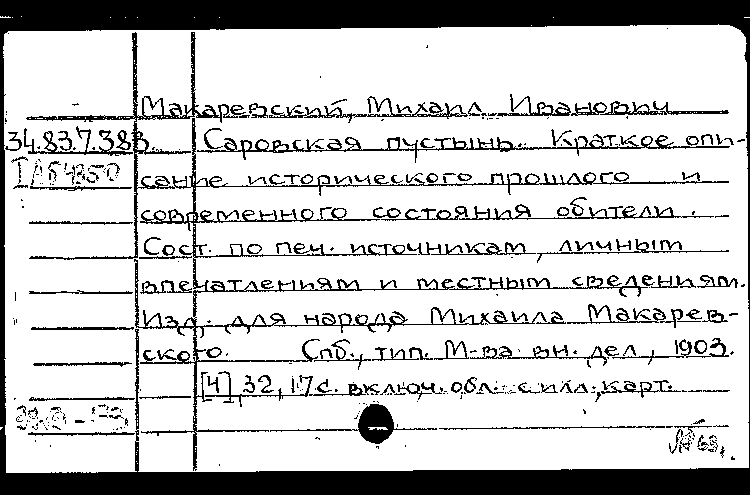 Макаревский, Михаил Иванович
34.83.7.383. Саровская пустынь. Краткое опи-
сание исторического прошлого и
современного состояния обители.
Сост. по печ. источникам, личным
впечатлениям и местным сведениям.
Изд. для народа Михаила Макарев-
ского. Спб., тип. М-ва вн. дел, 1903.
[4], 32, 17с. включ. обл. с илл., карт.